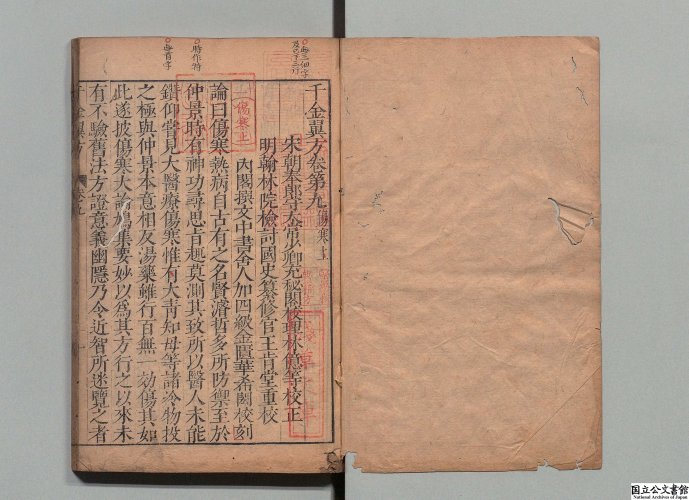 千金翼方卷第九傷寒上
宋朝奉郎守太常少卿充秘閣校理林億等校正
明翰林院檢討國史纂修官王肯堂重校
內閣撰文中書舍人加四級金匱華希閎校刻
論曰傷寒熱病自古有之名賢濬哲多所防禦至於
仲景時有神功尋思旨趣莫測其致所以醫人未能
鑽仰嘗見大醫療傷寒惟有大青知母等諸冷物投
之極與仲景本意相反湯藥雖行百無一効傷其如
此遂披傷寒大論鳩集要妙以為其方行之以來未
有不驗舊法方證意義幽隱乃令近智所迷覽之者
千金翼方 卷九
傷寒上
時作特
國立公文書館
National Archives of Japan